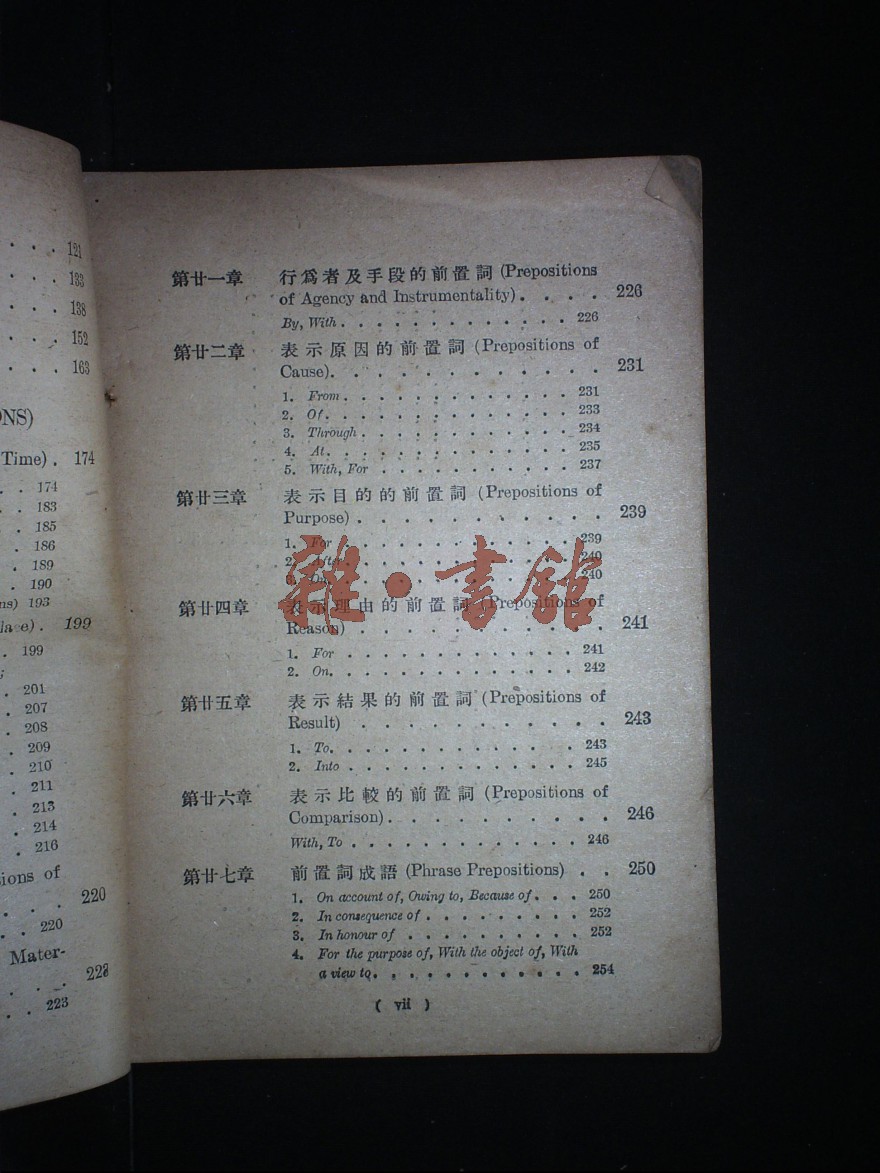 121
133
138
152
163
ONS)
Time) . 174
. . 174
183
. 185
. 186
. 189
. 190
ns) 193
lace) . 199
. 199
. 201
. 207
. 208
. 209
. 210
. 211
. 213
. 214
. 216
ions of
220
. . 220
Mater-
223
. . 223
第廿一章 行爲者及手段的前置詞 (Prepositions
of Agency and Instrumentality) . . . . 226
By, With . . . . . . . . . . . . . 226
第廿二章 表示原因的前置詞 (Prepositions of
Cause) . . . . . . . . . . . 231
1. From . . . . . . . . . . . . . 231
2. Of . . . . . . . . . . . . . . 233
3. Through . . . . . . . . . . . . 234
4. At . . . . . . . . . . . . . . 235
5. With, For . . . . . . . . . . . 237
第廿三章 表示目的的前置詞 (Prepositions of
Purpose) . . . . . . . . . . . 239
1. For . . . . . . . . . . . . . 239
2. After . . . . . . . . . . . . 240
3. . . . . . . . . . . . . 240
雜·書館
第廿四章 表示理由的前置詞 (Prepositions of
Reason) . . . . . . . . . . . 241
1. For . . . . . . . . . . . . . 241
2. On . . . . . . . . . . . . . . 242
第廿五章 表示結果的前置詞 (Prepositions of
Result) . . . . . . . . . . . 243
1. To . . . . . . . . . . . . . . 243
2. Into . . . . . . . . . . . . . 245
第廿六章 表示比較的前置詞 (Prepositions of
Comparison) . . . . . . . . . . 246
With, To . . . . . . . . . . . . 246
第廿七章 前置詞成語 (Phrase Prepositions) . . 250
1. On account of, Owing to, Because of . . . 250
2. In consequence of . . . . . . . . . 252
3. In honour of . . . . . . . . . . 252
4. For the purpose of, With the object of, With
a view to . . . . . . . . . . . . 254
( vii )